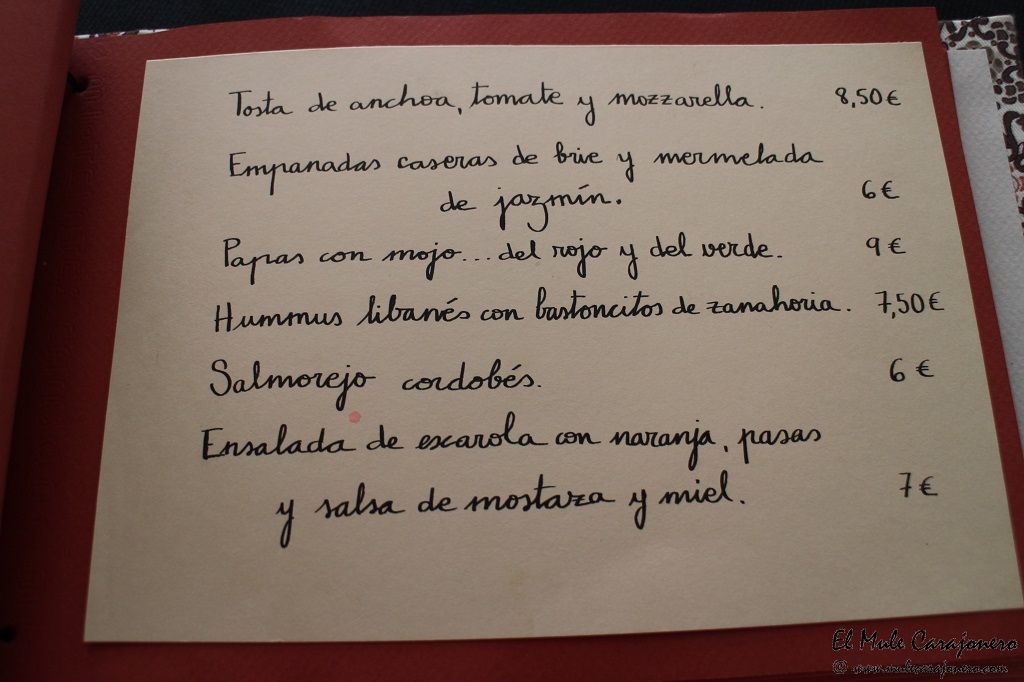 Tosta de anchoa, tomate y mozzarella. 8,50€
Empanadas caseras de brie y mermelada
de jazmín. 6€
Papas con mojo... del rojo y del verde. 9€
Hummus libanés con bastoncitos de zanahoria. 7,50€
Salmorejo cordobés. 6€
Ensalada de escarola con naranja, pasas
y salsa de mostaza y miel. 7€
El Mule Carajonero
© www.mulecarajonero.com